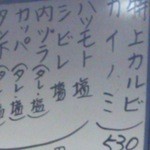 特上カルビ
カイノミ
530
ハツモト 塩
シビレ 塩
内ヅラ (タレ・塩)
カッパ (タレ